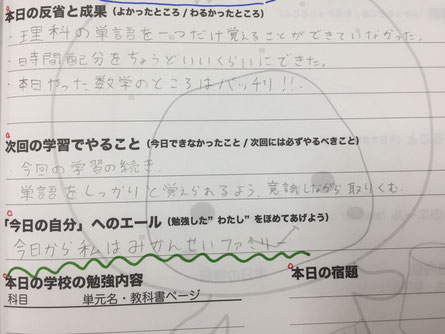 本日の反省と成果（よかったところ / わるかったところ）
・理科の単語を一つだけ覚えることができていなかった。
・時間配分をちょうどいいくらいにできた。
・本日やった数学のところはバッチリ!!.
次回の学習でやること（今日できなかったこと / 次回には必ずやるべきこと）
・今回の学習の続き.
単語をしっかりと覚えられるよう意識しながら取りくむ.
「今日の自分」へのエール（勉強した”わたし”をほめてあげよう）
今日から私はみかんせいファミリー
本日の学校の勉強内容
本日の宿題
科目　単元名・教科書ページ